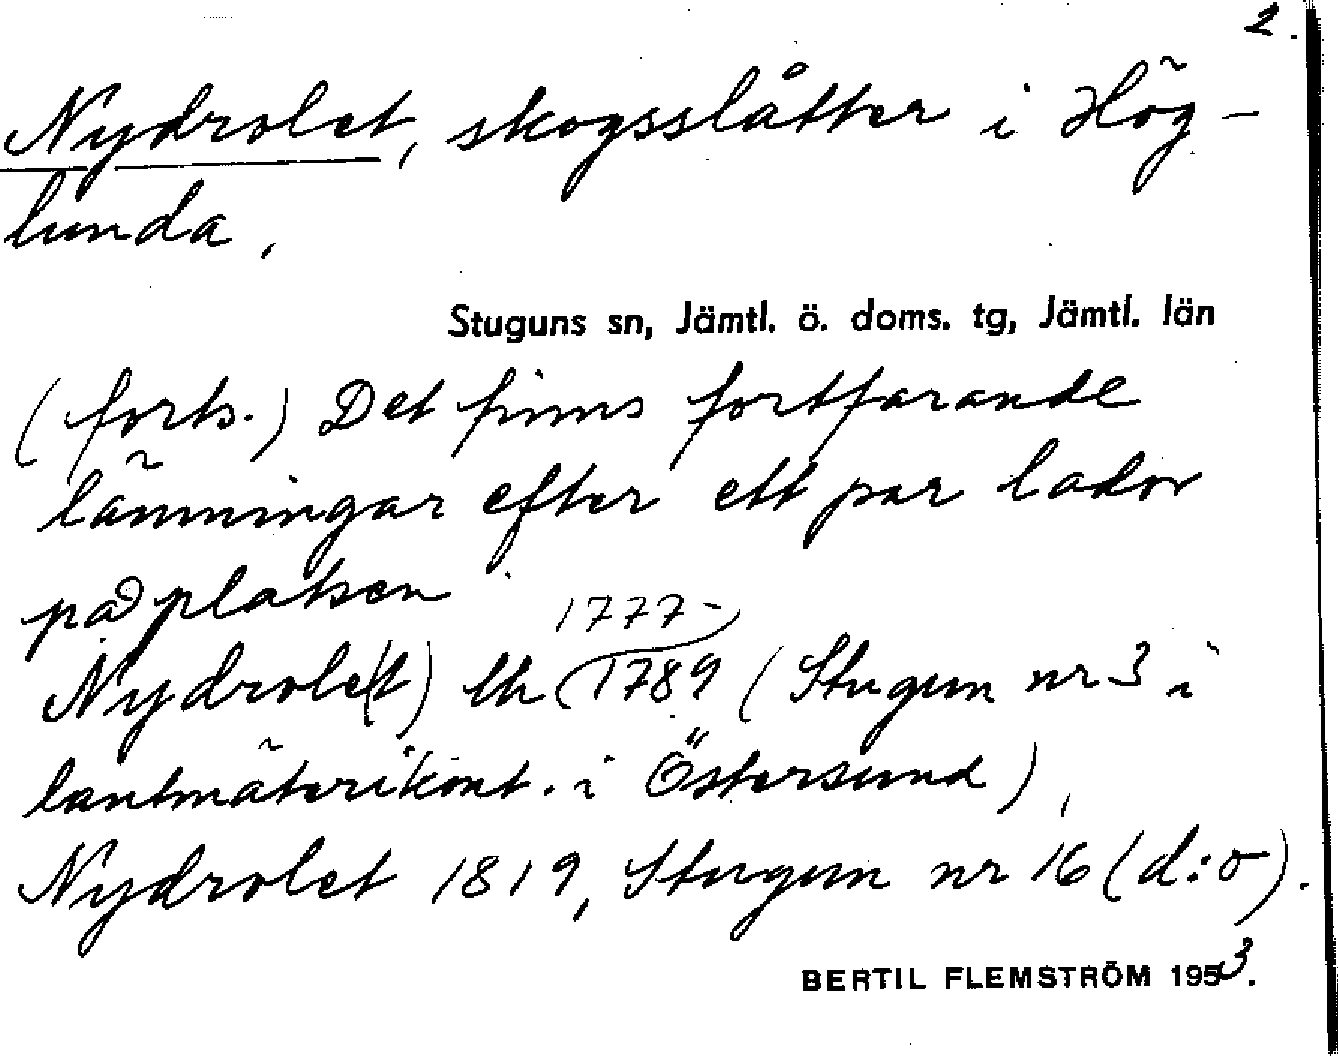 2.
Nydrolet, skogsslåtter i Hög-
lunda,
Stuguns sn, Jämtl. ö. doms. tg, Jämtl. län
(forts.) Det finns fortfarande
lämningar efter ett par lador
på platsen.
1777-
Nydrole(t) lh (1789 (Stugun nr 3 i
lantmäterikont. i Östersund),
Nydrolet 1819, Stugun nr 16 (d:o).
BERTIL FLEMSTRÖM 1953.